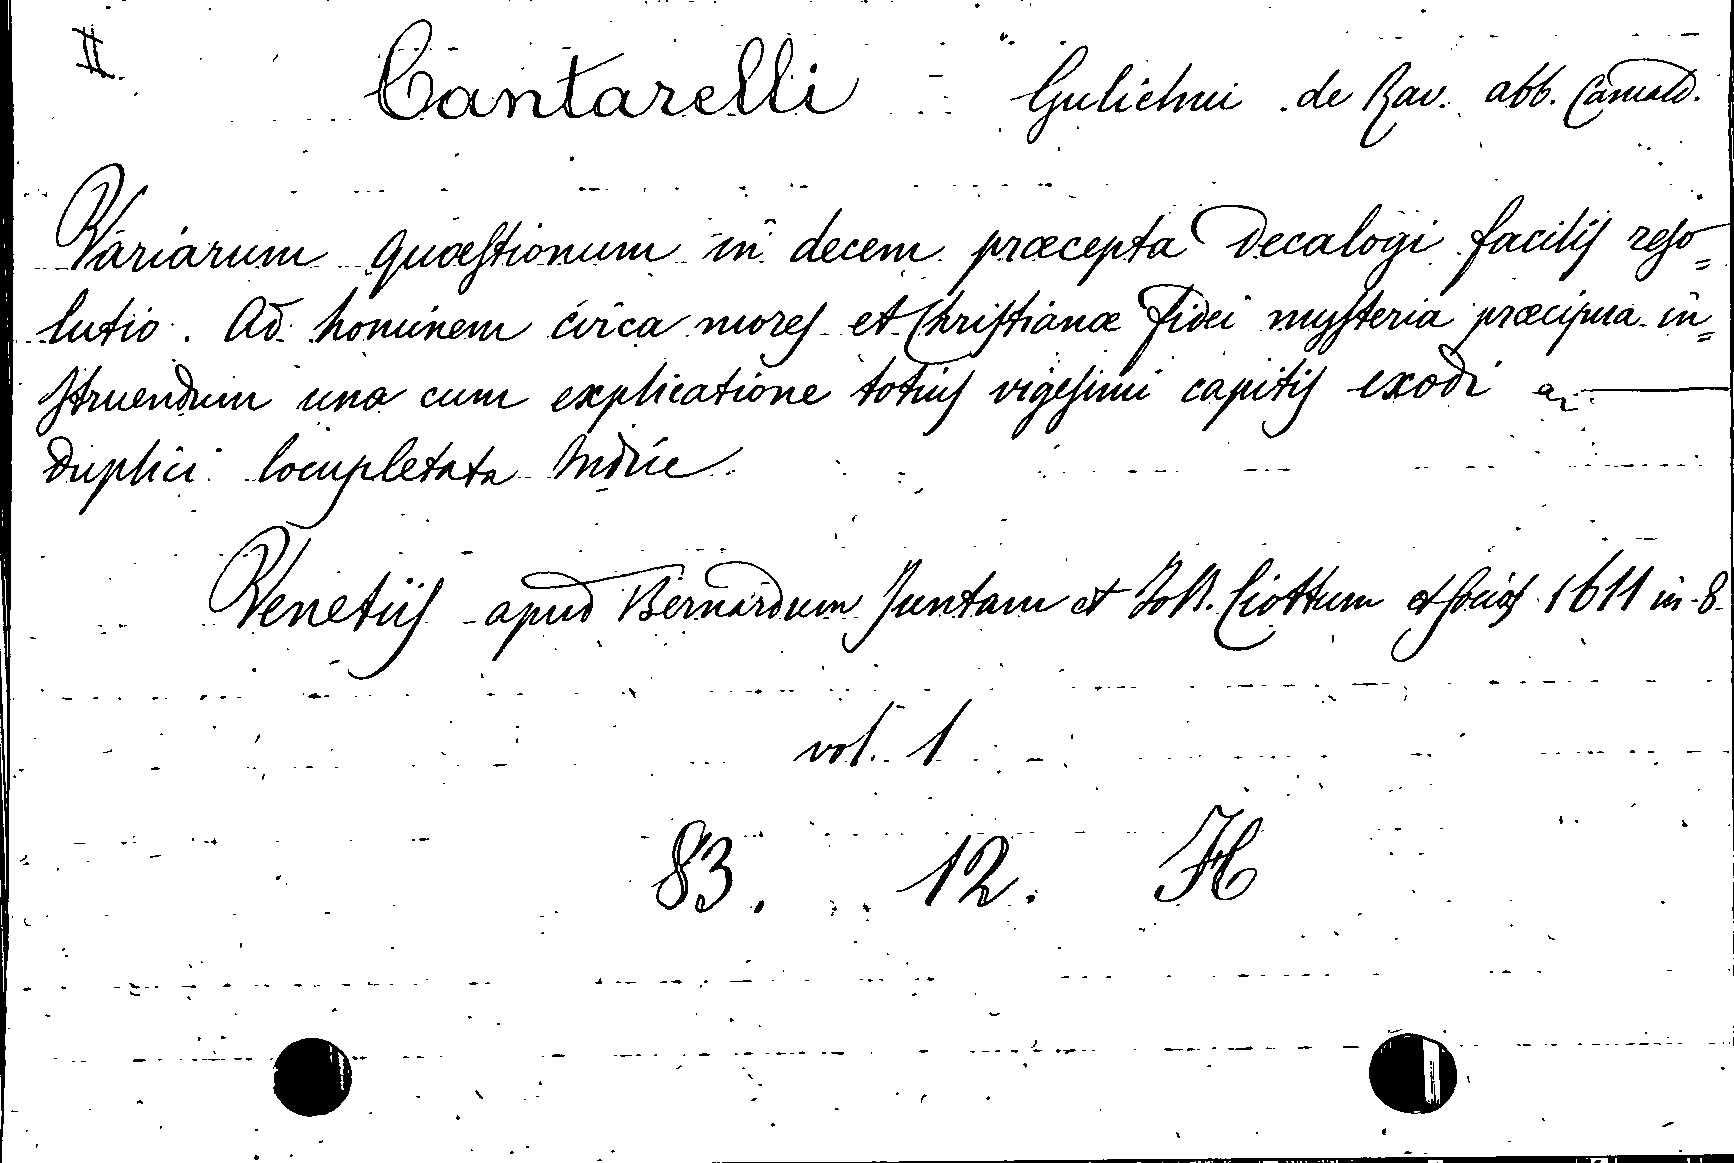 II
Cantarelli Gulielmi de Rav. abb. Camald.
Variarum quæstionum in decem præcepta Decalogi facilis reso=
lutio. Ad hominem circa mores et Christianæ fidei mysteria præcipua in=
struendum una cum explicatione totius vigesimi capitis exodi ac
duplici locupletata Indice.
Venetiis apud Bernardum Juntam et Jo B. Ciottum et socios 1611 in 8
vol. 1
83. 12. H